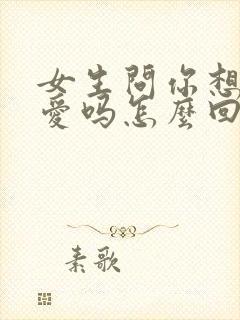 女生問你想
愛吗怎麼回
素歌